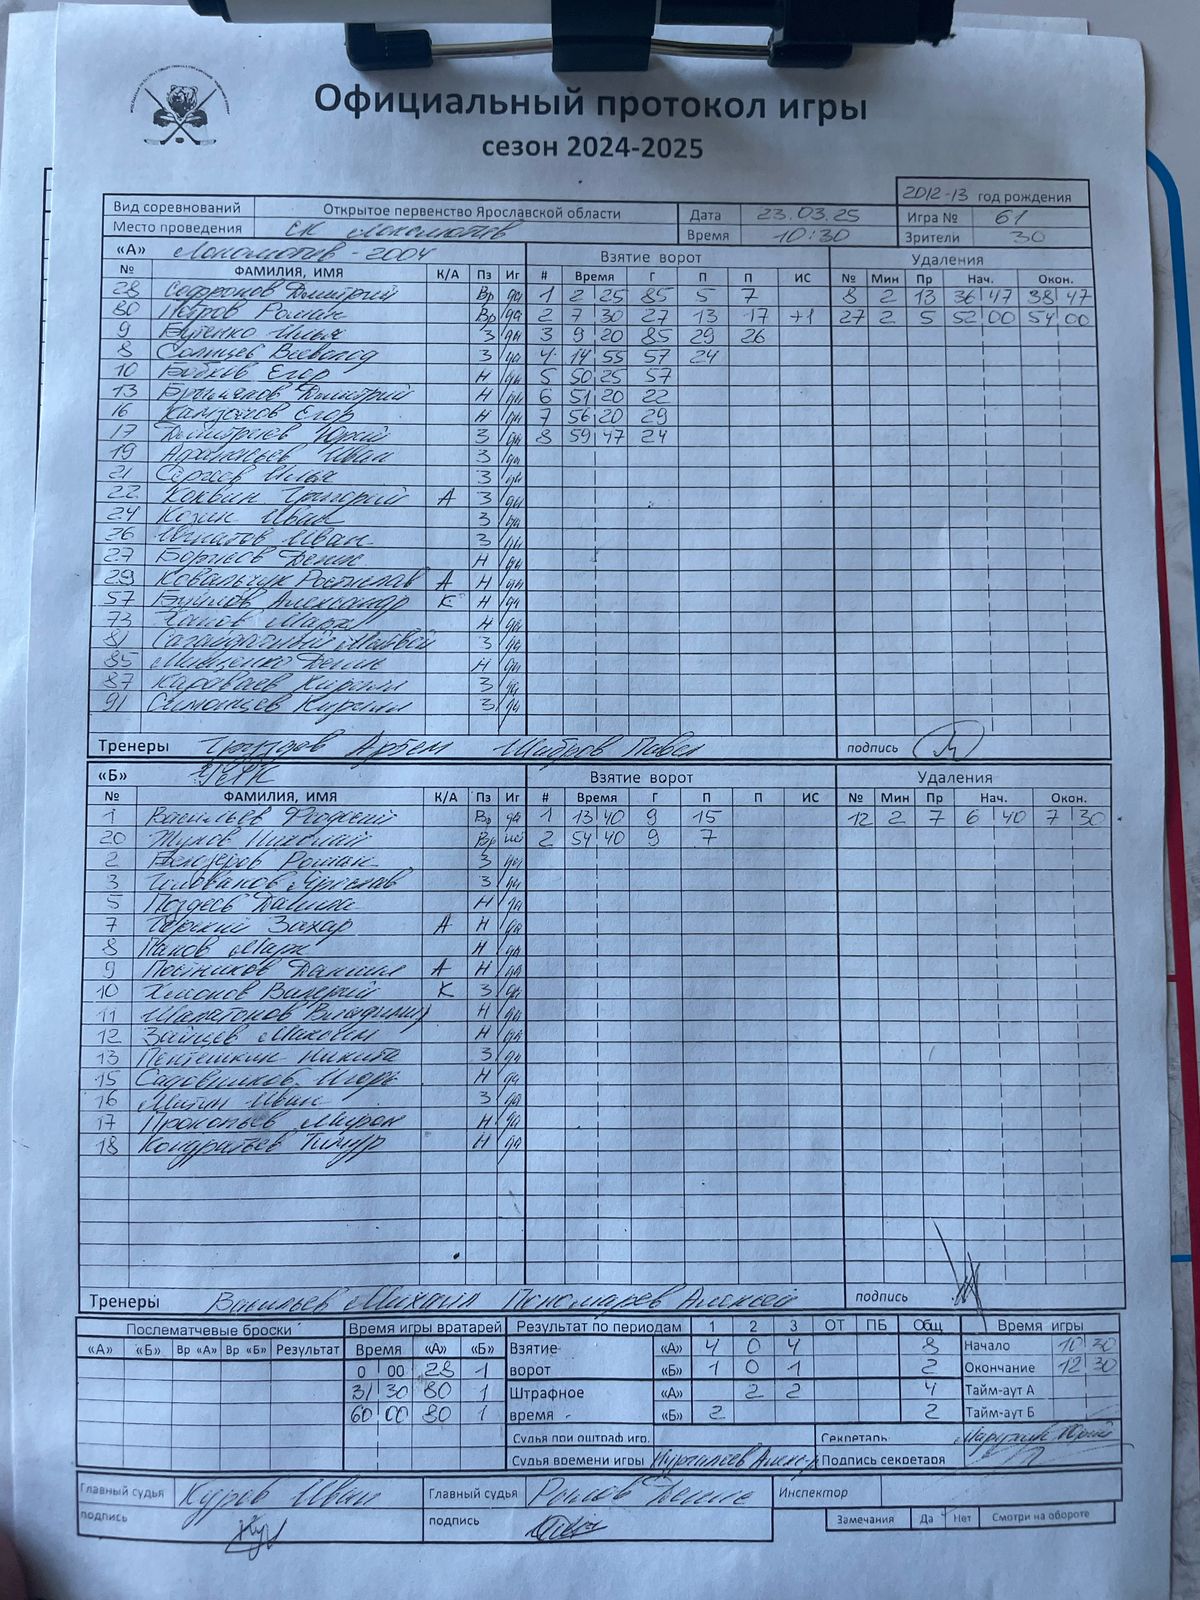 Официальный протокол игры
сезон 2024-2025
2012-13 год рождения
Вид соревнований Открытое первенство Ярославской области Дата 23.03.25 Игра № 61
Место проведения СК Локомотив Время 10:30 Зрители 30
«А» Локомотив - 2004 Взятие ворот Удаления
№ ФАМИЛИЯ, ИМЯ К/А Пз Иг # Время Г П П ИС № Мин Пр Нач. Окон.
28 Софронов Дмитрий Вр да 1 2 25 85 5 7 8 2 13 36 47 38 47
80 Петров Роман Вр да 2 7 30 27 13 17 +1 27 2 5 52 00 54 00
9 Бутенко Илья З да 3 9 20 85 29 26
8 Солнцев Всеволод З да 4 14 55 57 24
10 Бобков Егор Н да 5 50 25 57
13 Дмитрий Н да 6 51 20 22
16 Егор Н да 7 56 20 29
17 Дмитриев Юрий З да 8 59 47 24
19 Афанасьев Иван З да
21 Сергеев Илья З да
22 Коквин Григорий А З да
24 Козин Иван З да
26 Игнатов Иван З да
27 Борисов Денис Н да
29 Ковальчук Ростислав А Н да
57 Александр К Н да
73 Марк Н да
81 Матвей З да
85 Мищенко Денис Н да
87 Караваев Кирилл З да
91 Симонцев Кирилл З да
Тренеры Груздев Артем Шибров Павел подпись
«Б» Взятие ворот Удаления
№ ФАМИЛИЯ, ИМЯ К/А Пз Иг # Время Г П П ИС № Мин Пр Нач. Окон.
1 Васильев Вр да 1 13 40 9 15 12 2 7 6 40 7 30
20 Жуков Николай Вр нет 2 54 40 9 7
2 Белозеров Роман З да
3 Голованов Ярослав З да
5 Данила Н да
7 Терский Захар А Н да
8 Панов Марк Н да
9 Постников Даниил А Н да
10 Хионов Валерий К З да
11 Шапатонов Владимир Н да
12 Зайцев Максим Н да
13 Пентешкин Никита З да
15 Садовников Игорь Н да
16 Митин Иван З да
17 Прокопьев Мирон Н да
18 Кондратьев Тимур Н да
Тренеры Васильев Михаил Пономарев Алексей подпись
Послематчевые броски Время игры вратарей Результат по периодам 1 2 3 ОТ ПБ Общ Время игры
«А» «Б» Вр «А» Вр «Б» Результат Время «А» «Б» Взятие «А» 4 0 4 8 Начало 10 30
0 00 28 1 ворот «Б» 1 0 1 2 Окончание 12 30
31 30 80 1 Штрафное «А» 2 2 4 Тайм-аут А
60 00 80 1 время «Б» 2 2 Тайм-аут Б
Судья при оштраф.игр. Секретарь Маругин Юрий
Судья времени игры Подпись секретаря
Главный судья Куров Иван Главный судья Денис Инспектор
подпись подпись Замечания Да Нет Смотри на обороте